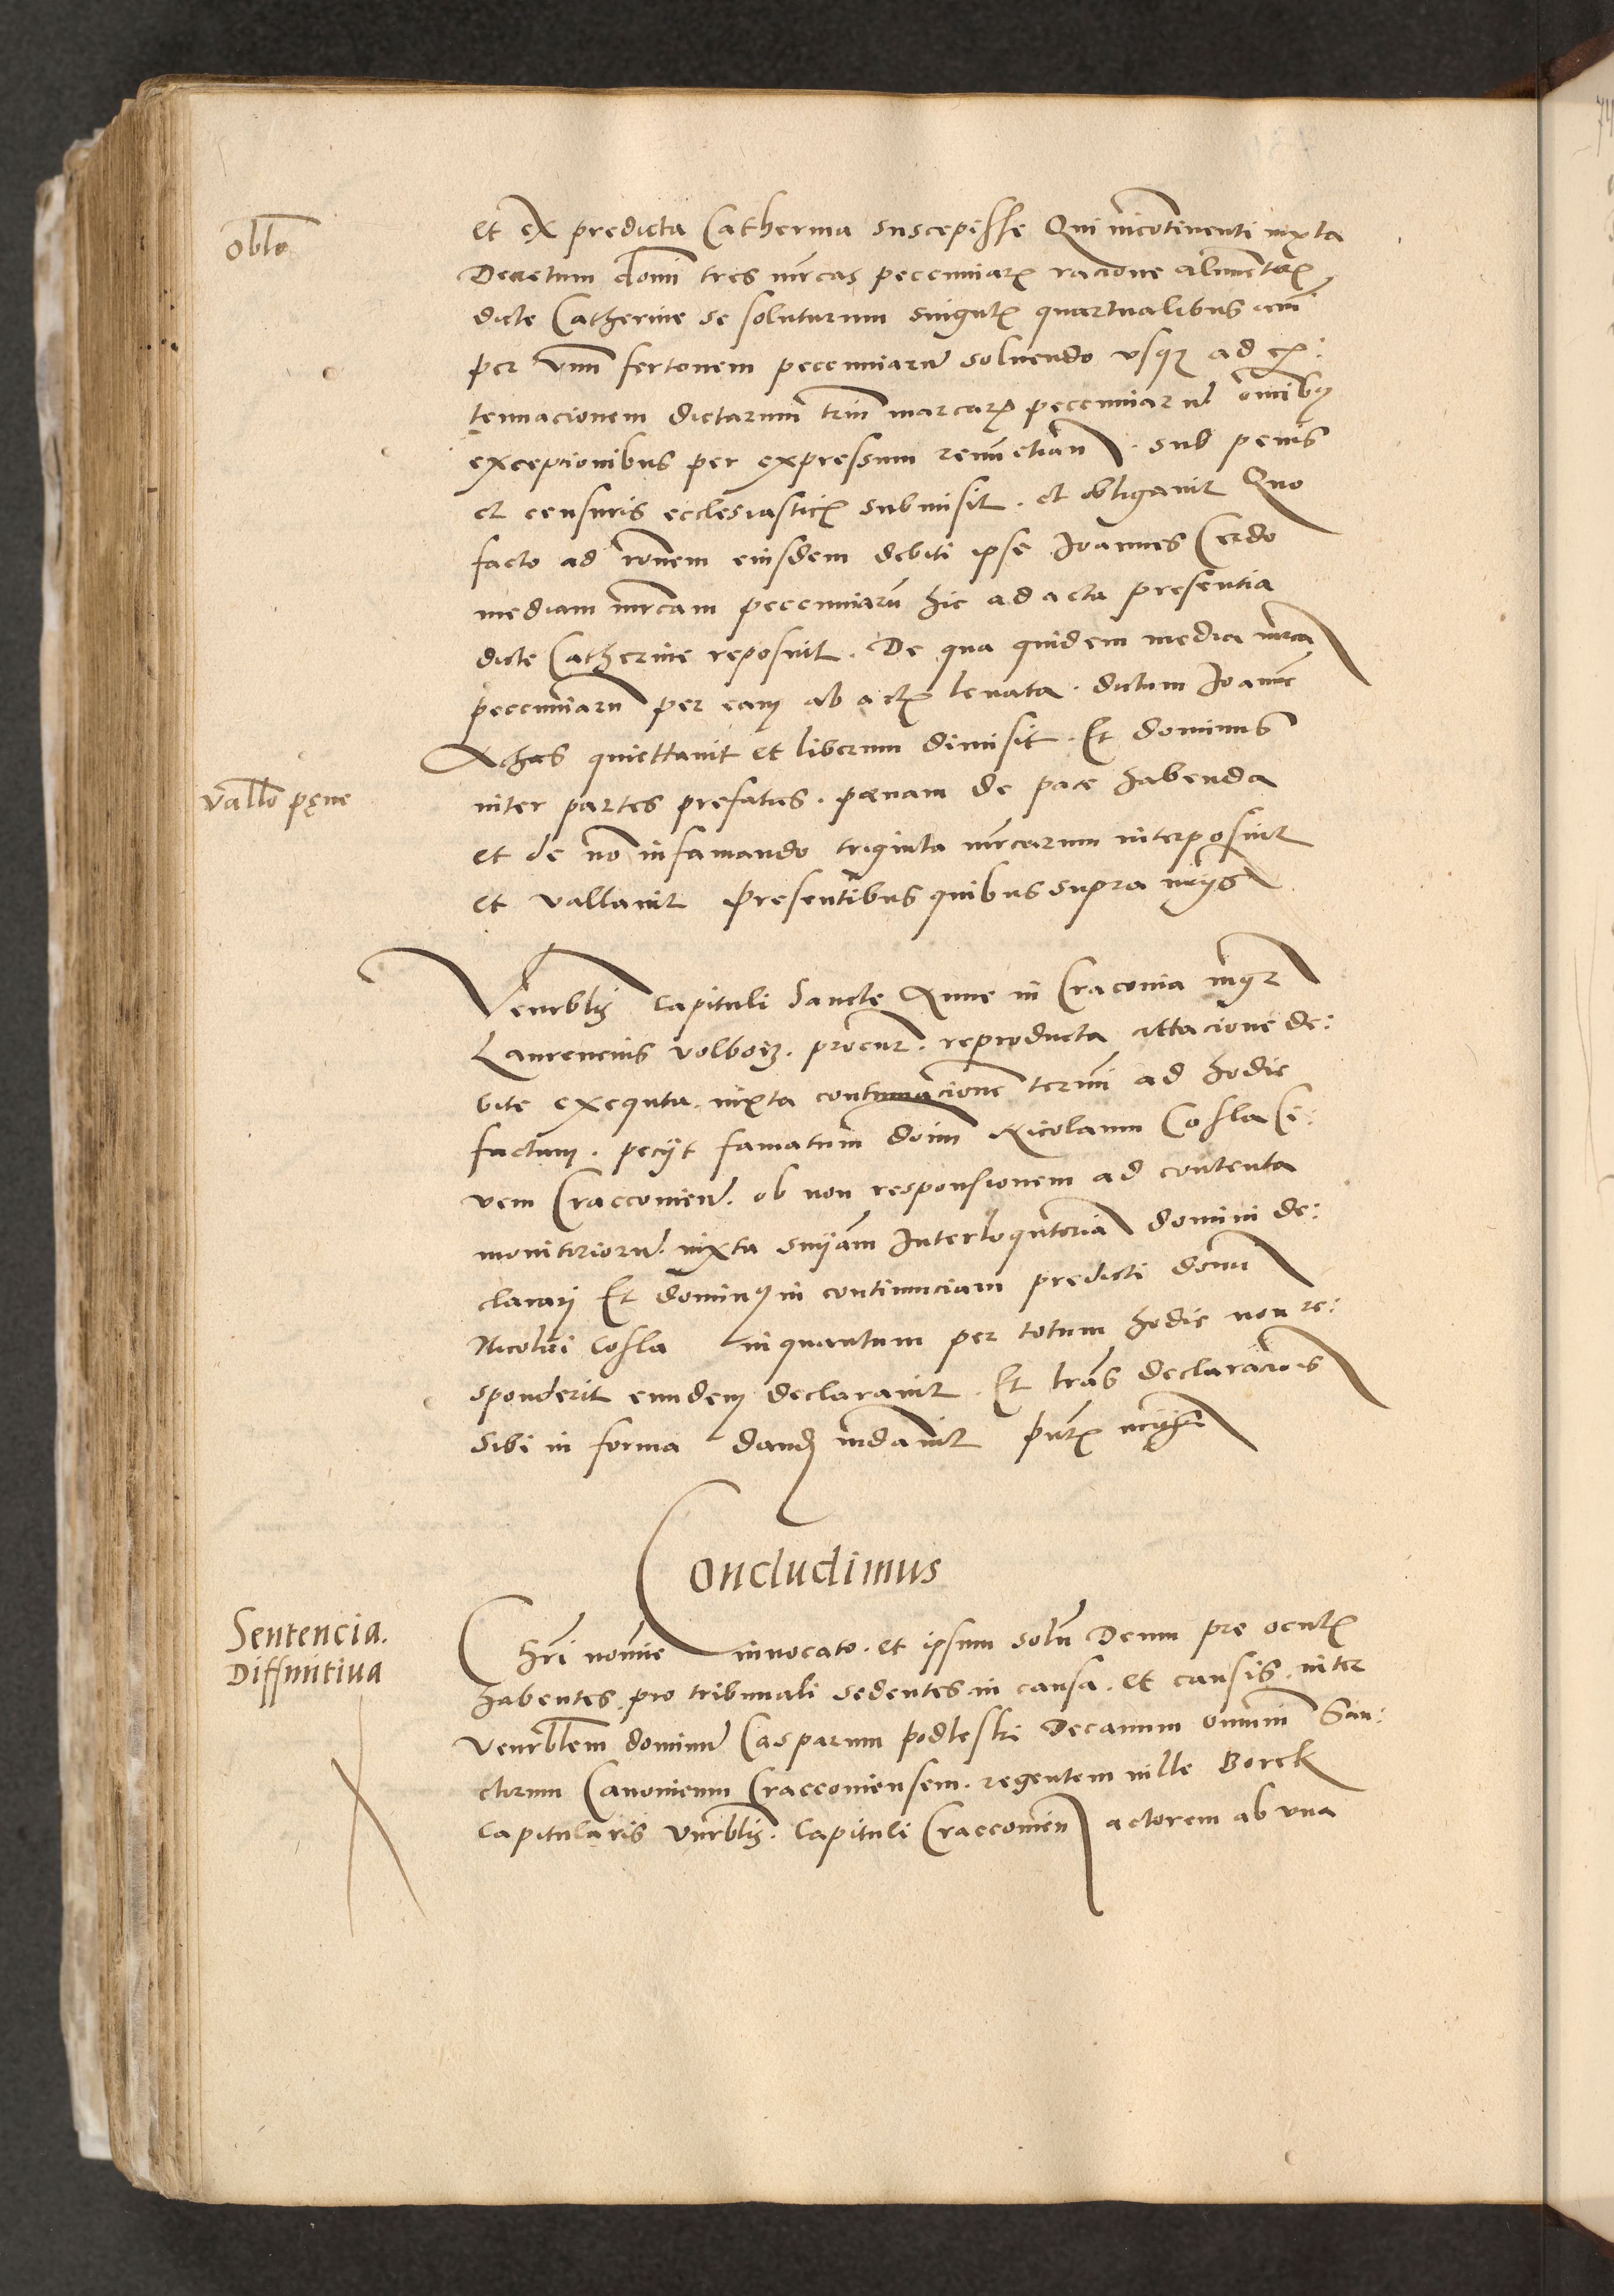 Oblo
et ex predicta Catherina suscepisse Qui incontinenti iuxta
Decretum domi tres mrcas pecuniarum racione alimentorum
dicte Catherine se soluturum singulis quartualibus anni
per vnu fertonem pecuniarum soluendo vsque ad ex:
tenuacionem dictarum trium marcarum pecuniarum omnibus
excepcionibus per expressum sub penis
et censuris ecclesiasticis submisit. et obligauit Quo
facto ad ronem eiusdem debiti ipse Joannes Cerdo
mediam mrcam pecuniarum hic ad acta presentia
dicte Catherine reposuit. De qua quidem media mrca
pecuniarum per eam ab actis leuata. dictum Joannem
quiettauit et liberum dimisit. Et dominus
Vallo pęne
inter partes prefatas. poenam de pace habenda
et de no infamando triginta mrcarum interposuit
et vallauit presentibus quibus supra
Venrblis Capituli Sancte Anne in Craconia mgr
Laurencius procur. reproducta cittacione de:
bite exequta. iuxta continuacionem termini ad hodie
factum. peciit famatum donu Nicolaum Cosla Ci:
vem Craccouien. ob non responsionem ad contenta
monitoriorum. iuxta sniam Interloqutoria domini de:
clarari Et dominus in contumaciam predicti domi
Nicolai Cosla in quantum per totum hodie non re:
sponderit eundem declarauit. Et lras declaracionis
sibi in forma dandas mdauit pntibus
Concludimus
Sentencia.
Diffinitiua
Chri nomine inuocato. et ipsum solu Deum pre oculis
habentes. pro tribunali sedentes in causa. et causis. inter
Venrblem dominum Casparum podleski Decanum omnium San:
ctorum Canonicum Craccouiensem. regentem ville Borek
Capitularis Vnrblis. Capituli Craccouien actorem ab vna